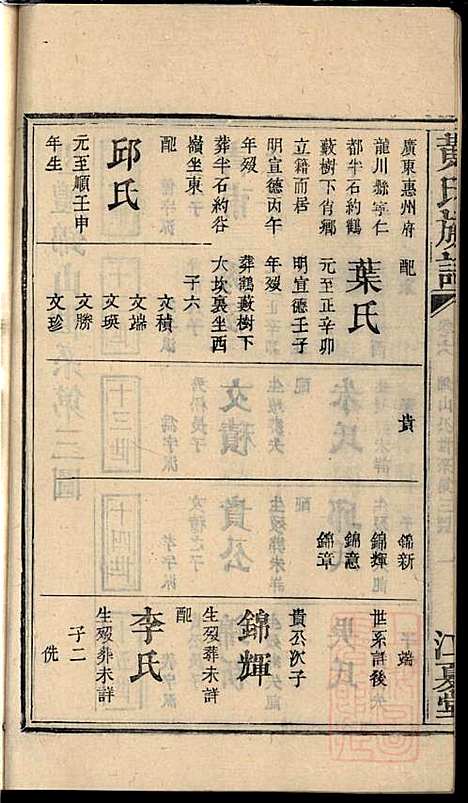 黃氏族譜
江夏堂
廣東惠州府
龍川縣寧仁
都半石約鶴
藪樹下肖鄉
立籍而居
明宣德丙午
年歿
葬半石約谷
嶺坐東
配
邱氏
元至順壬申
年生
配
葉氏
元至正辛卯
明宣德壬子
年歿
葬鶴藪樹下
大坎裏坐西
子六
文積
文端
文瑛
文勝
文珍
貴
錦新
錦輝
錦意
錦章
子 端
世系詳後
貴公次子
錦輝
生歿葬未詳
配
李氏
生歿葬未詳
子二
侁